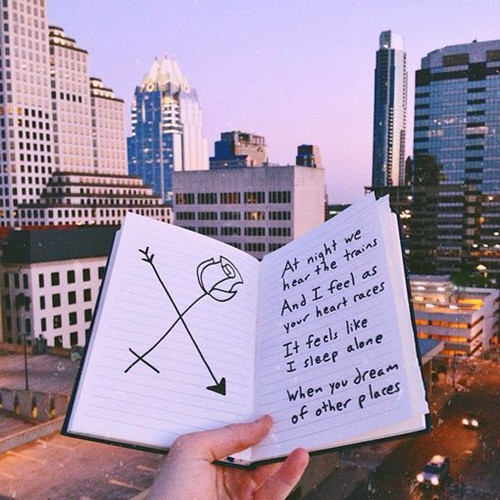 At night we
hear the trains
And I feel as
your heart races
It feels like
I sleep alone
When you dream
of other places